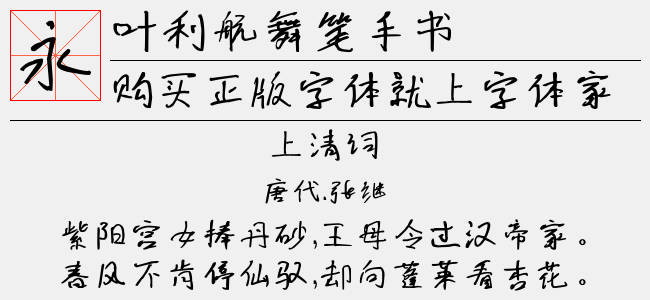 永
叶利航舞笔手书
购买正版字体就上字体家
上清词
唐代.张继
紫阳宫女捧丹砂,王母令过汉帝家。
春风不肯停仙驭,却向蓬莱看杏花。